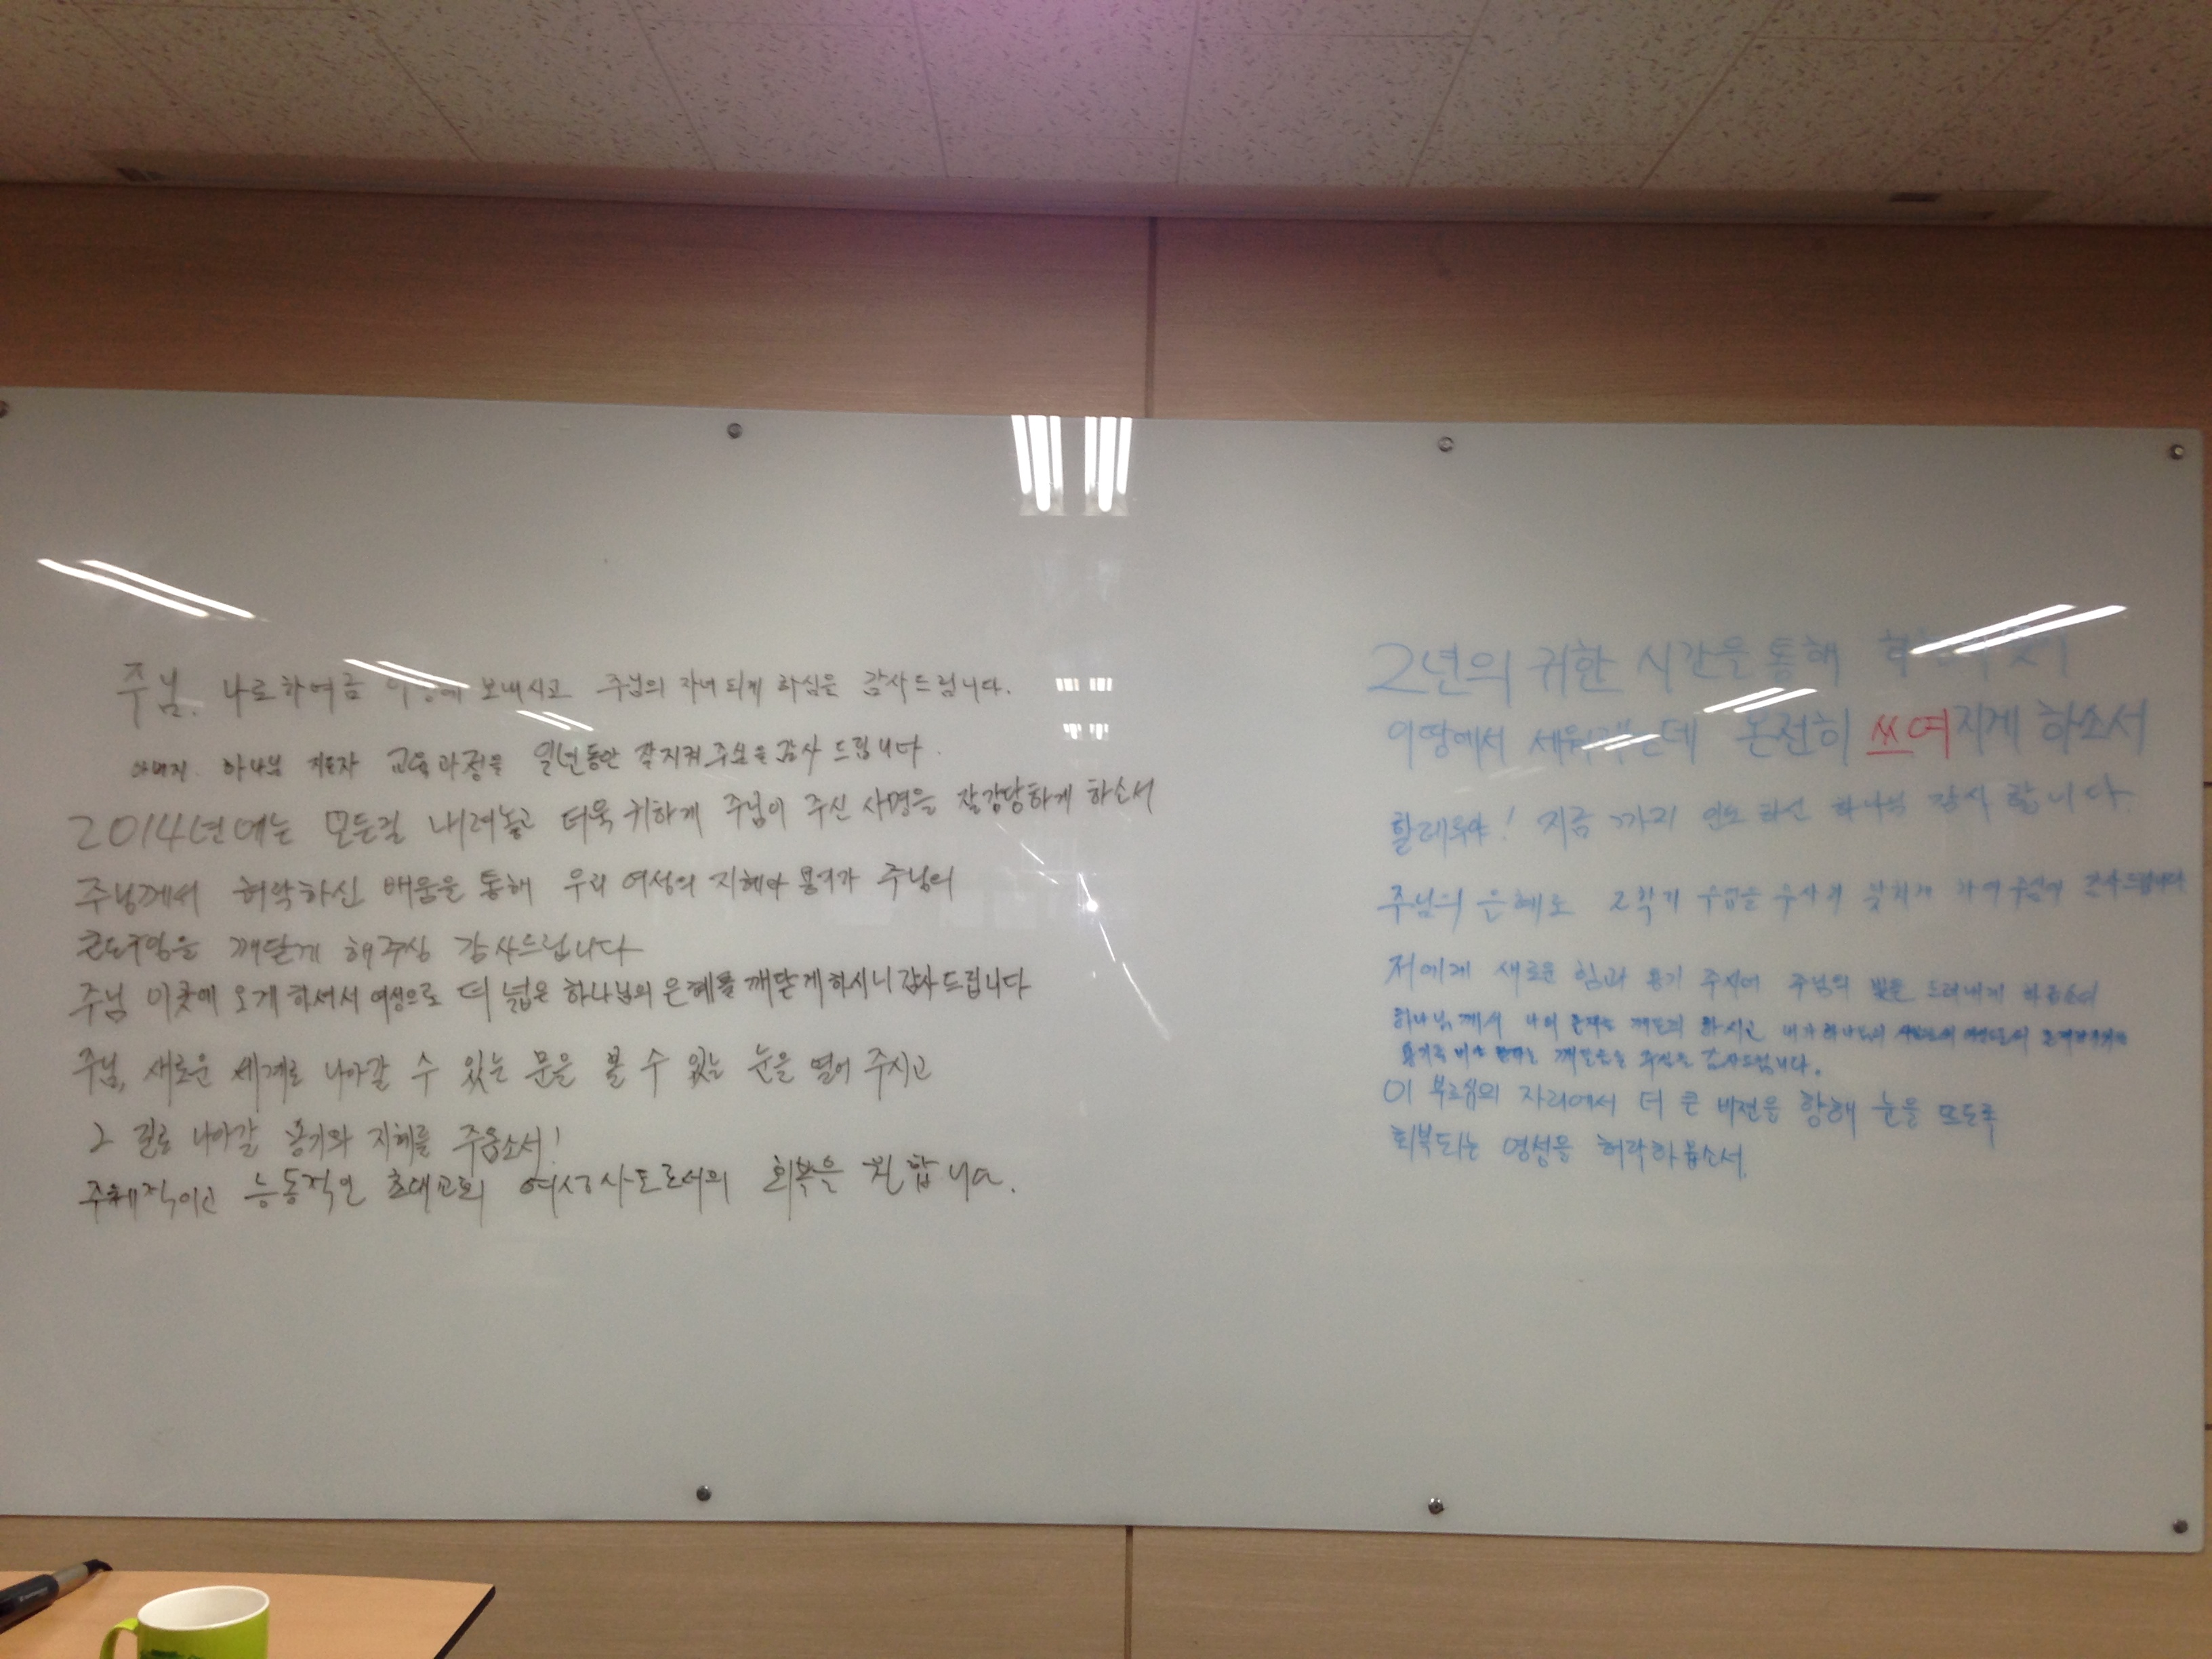 주님. 나로하여금 보내시고 주님의 자녀 되게 하심을 감사드립니다.
아버지 하나님 지도자 교육과정을 일년동안 잘지켜주심을 감사 드립니다.
2014년에는 모든걸 내려놓고 더욱 귀하게 주님이 주신 사명을 잘감당하게 하소서
주님께서 허락하신 배움을 통해 우리 여성의 지혜와 용기가 주님의
깨닫게 해주심 감사드립니다
주님 이곳에 오게 하셔서 여성으로 더 넓은 하나님의 은혜를 깨닫게하시니 감사드립니다
주님, 새로운 세계로 나아갈 수 있는 문을 볼 수 있는 눈을 열어 주시고
그 길로 나아갈 용기와 지혜를 주옵소서!
주체적이고 능동적인 초대교회 여성사도로서의 회복을 원합니다.
2년의 귀한 시간을 통해
이땅에서 온전히 쓰여지게 하소서
할레루야! 지금 까지 인도 하신 하나님 감사 합니다.
주님의 은혜로 2학기 수업을 무사히 맞치게 하여 주심에 감사드립니다
저에게 새로운 힘과 용기 주시어 주님의 빛을 드러내게 하옵소서
하나님께서 나의 깨닫게 하시고 내가
깨달음을 주심을 감사드립니다.
이 부르심의 자리에서 더 큰 비전을 향해 눈을 뜨도록
회복되는 영성을 허락하옵소서.